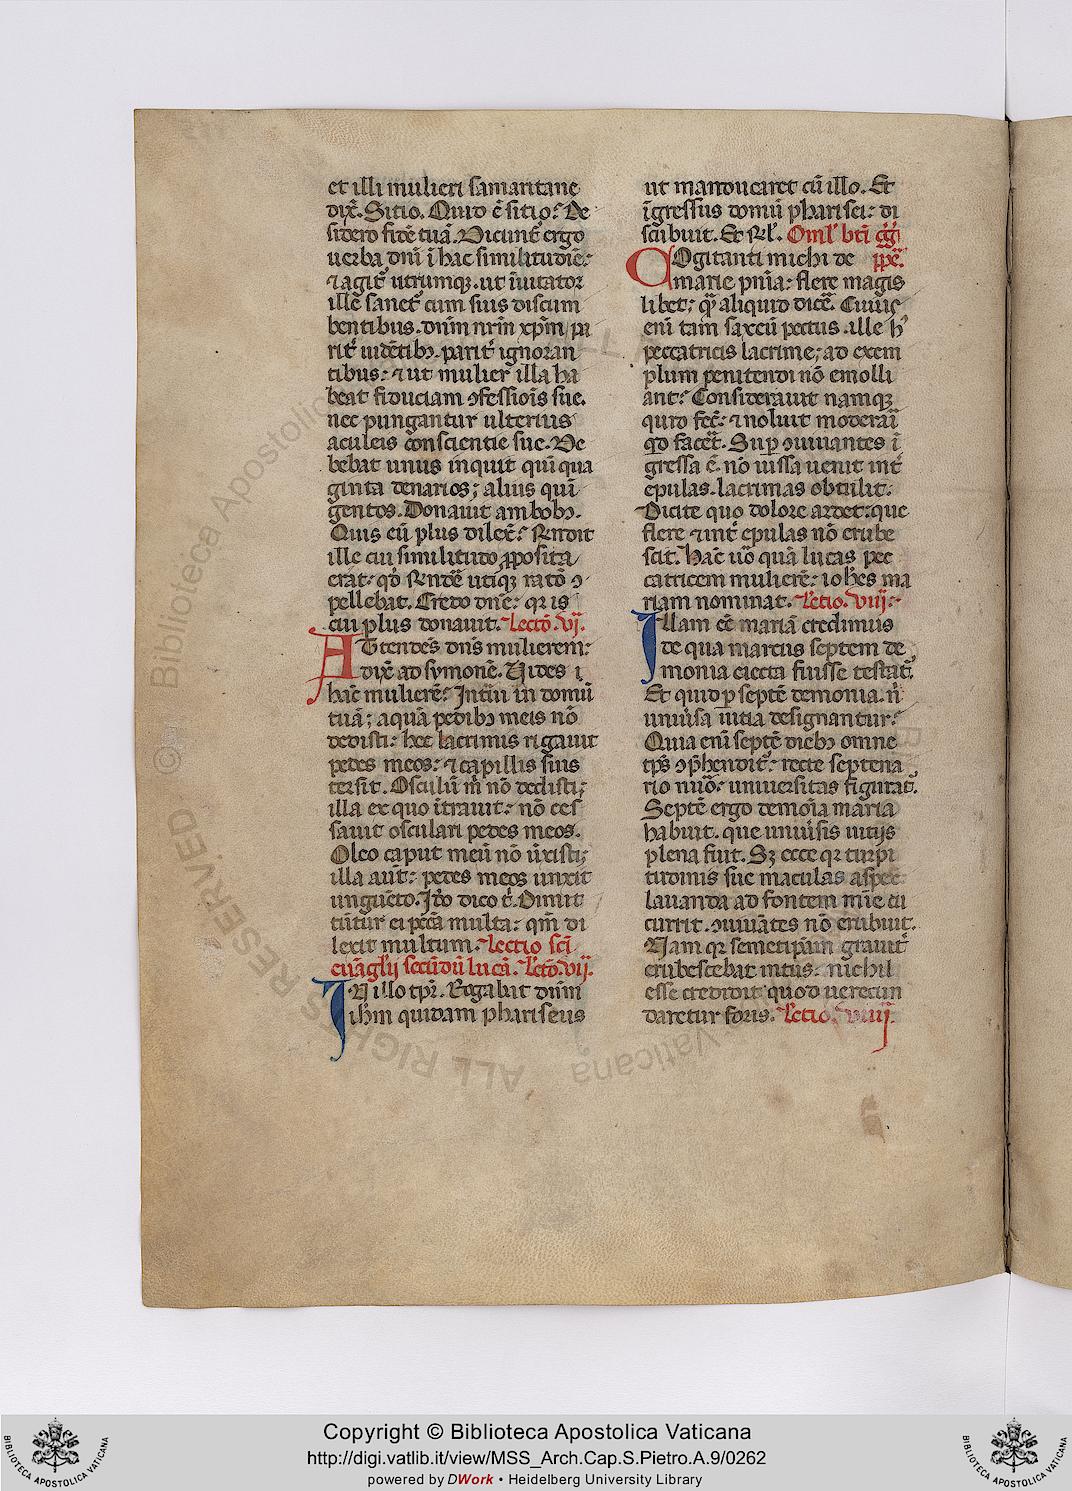 et illi mulieri samaritane
dix̄. Sitio. Quid ē sitio? De
sidero fidē tuā. Dicunt̄ ergo
uerba dn̄i ī hac similitudīe:
⁊ agit̄ utrumqꝫ. ut īuitator
ille sanet̄ cum suis discum
bentibus. dn̄m nr̄m xp̄m pa
rit̄ uidētibꝫ. parit̄ ignoran
tibus: ⁊ ut mulier illa ha
beat fiduciam ꝯfessiōis sue.
nec pungantur ulterius
aculeis conscientie sue. De
bebat unus inquit quīqua
ginta denarios; alius quī
gentos. Donauit ambobꝫ.
Quis eū plus dilex̄? Rn̄dit
ille cui similitudo ꝓposita
erat: qđ rn̄dē utiqꝫ ratō ꝯ
pellebat. Credo dn̄e: qr is
cui plus donauit. Lectō. vi.
Attendēs dn̄s mulierem:
dix̄ ad symonē. Vides
hāc mulierē? Intāui in domū
tuā; aquā pedibꝫ meis nō
dedisti: hec lacrimis rigauit
pedes meos: ⁊ capillis suis
tersit. Osculū m̄ nō dedisti;
illa ex quo ītrauit: nō ces
sauit osculari pedes meos.
Oleo caput meū nō ūxisti;
illa aut̄: pedes meos unxit
unguēto. Iō dico t̄. Dimit
tūtur ei pc̄ca multa: qm̄ di
lexit multum. Lectio sc̄i
euāgl̄ii secūdū lucā. Lectō. vij.
In illo tp̄r. Rogabat dn̄m
ih̄m quidam phariseus
ut manducaret cū illo. Et
īgressus domū pharisei: di
scūbuit. Et Rl̄. Oml̄ bt̄i gḡ
pp̄e.
Cogitanti michi de
marie pn̄ia: flere magis
libet; qꝫ aliquid dicē. Cuius
enī tam saxeū pectus. ille h̄
peccatricis lacrime; ad exem
plum penitendi nō emolli
ant? Considerauit namqꝫ
quid fec̄: ⁊ noluit moderari
qđ facēt. Suꝑ ꝯuiuantes ī
gressa ē. nō iussa uenit int̄
epulas. lacrimas obtulit.
Dicite quo dolore ardet: que
flere ⁊ int̄ epulas nō erube
scit. Hāc ūo quā lucas pec
catricem mulierē: ioh̄es ma
riam nominat. Lectio. viij.
Illam eē mariā credimus
de qua marcus septem de
monia eiecta fuisse testat̄.
Et quid ꝑ septē demonia. n̄
uniūsa uitia designantur?
Quia enī septē diebꝫ omne
tp̄s ꝯp̄hendit̄: recte septena
rio nūo: uniuersitas figurat̄.
Septē ergo demoīa maria
habuit. que uniūsis uitijs
plena fuit. Sꝫ ecce qr turpi
tudinis sue maculas aspec
lauanda ad fontem mīe cu
currit. ꝯuiuātes nō erubuit.
Nam qr semetip̄am grauit̄
erubescebat intus: nichil
esse credidit quod uerecun
daretur foris. Lectio. viiij.
© Biblioteca Apostolica Vaticana
ALL RIGHTS RESERVED
Copyright © Biblioteca Apostolica Vaticana
http://digi.vatlib.it/view/MSS_Arch.Cap.S.Pietro.A.9/0262
powered by DWork • Heidelberg University Library
BIBLIOTECA APOSTOLICA VATICANA
BIBLIOTECA APOSTOLICA VATICANA